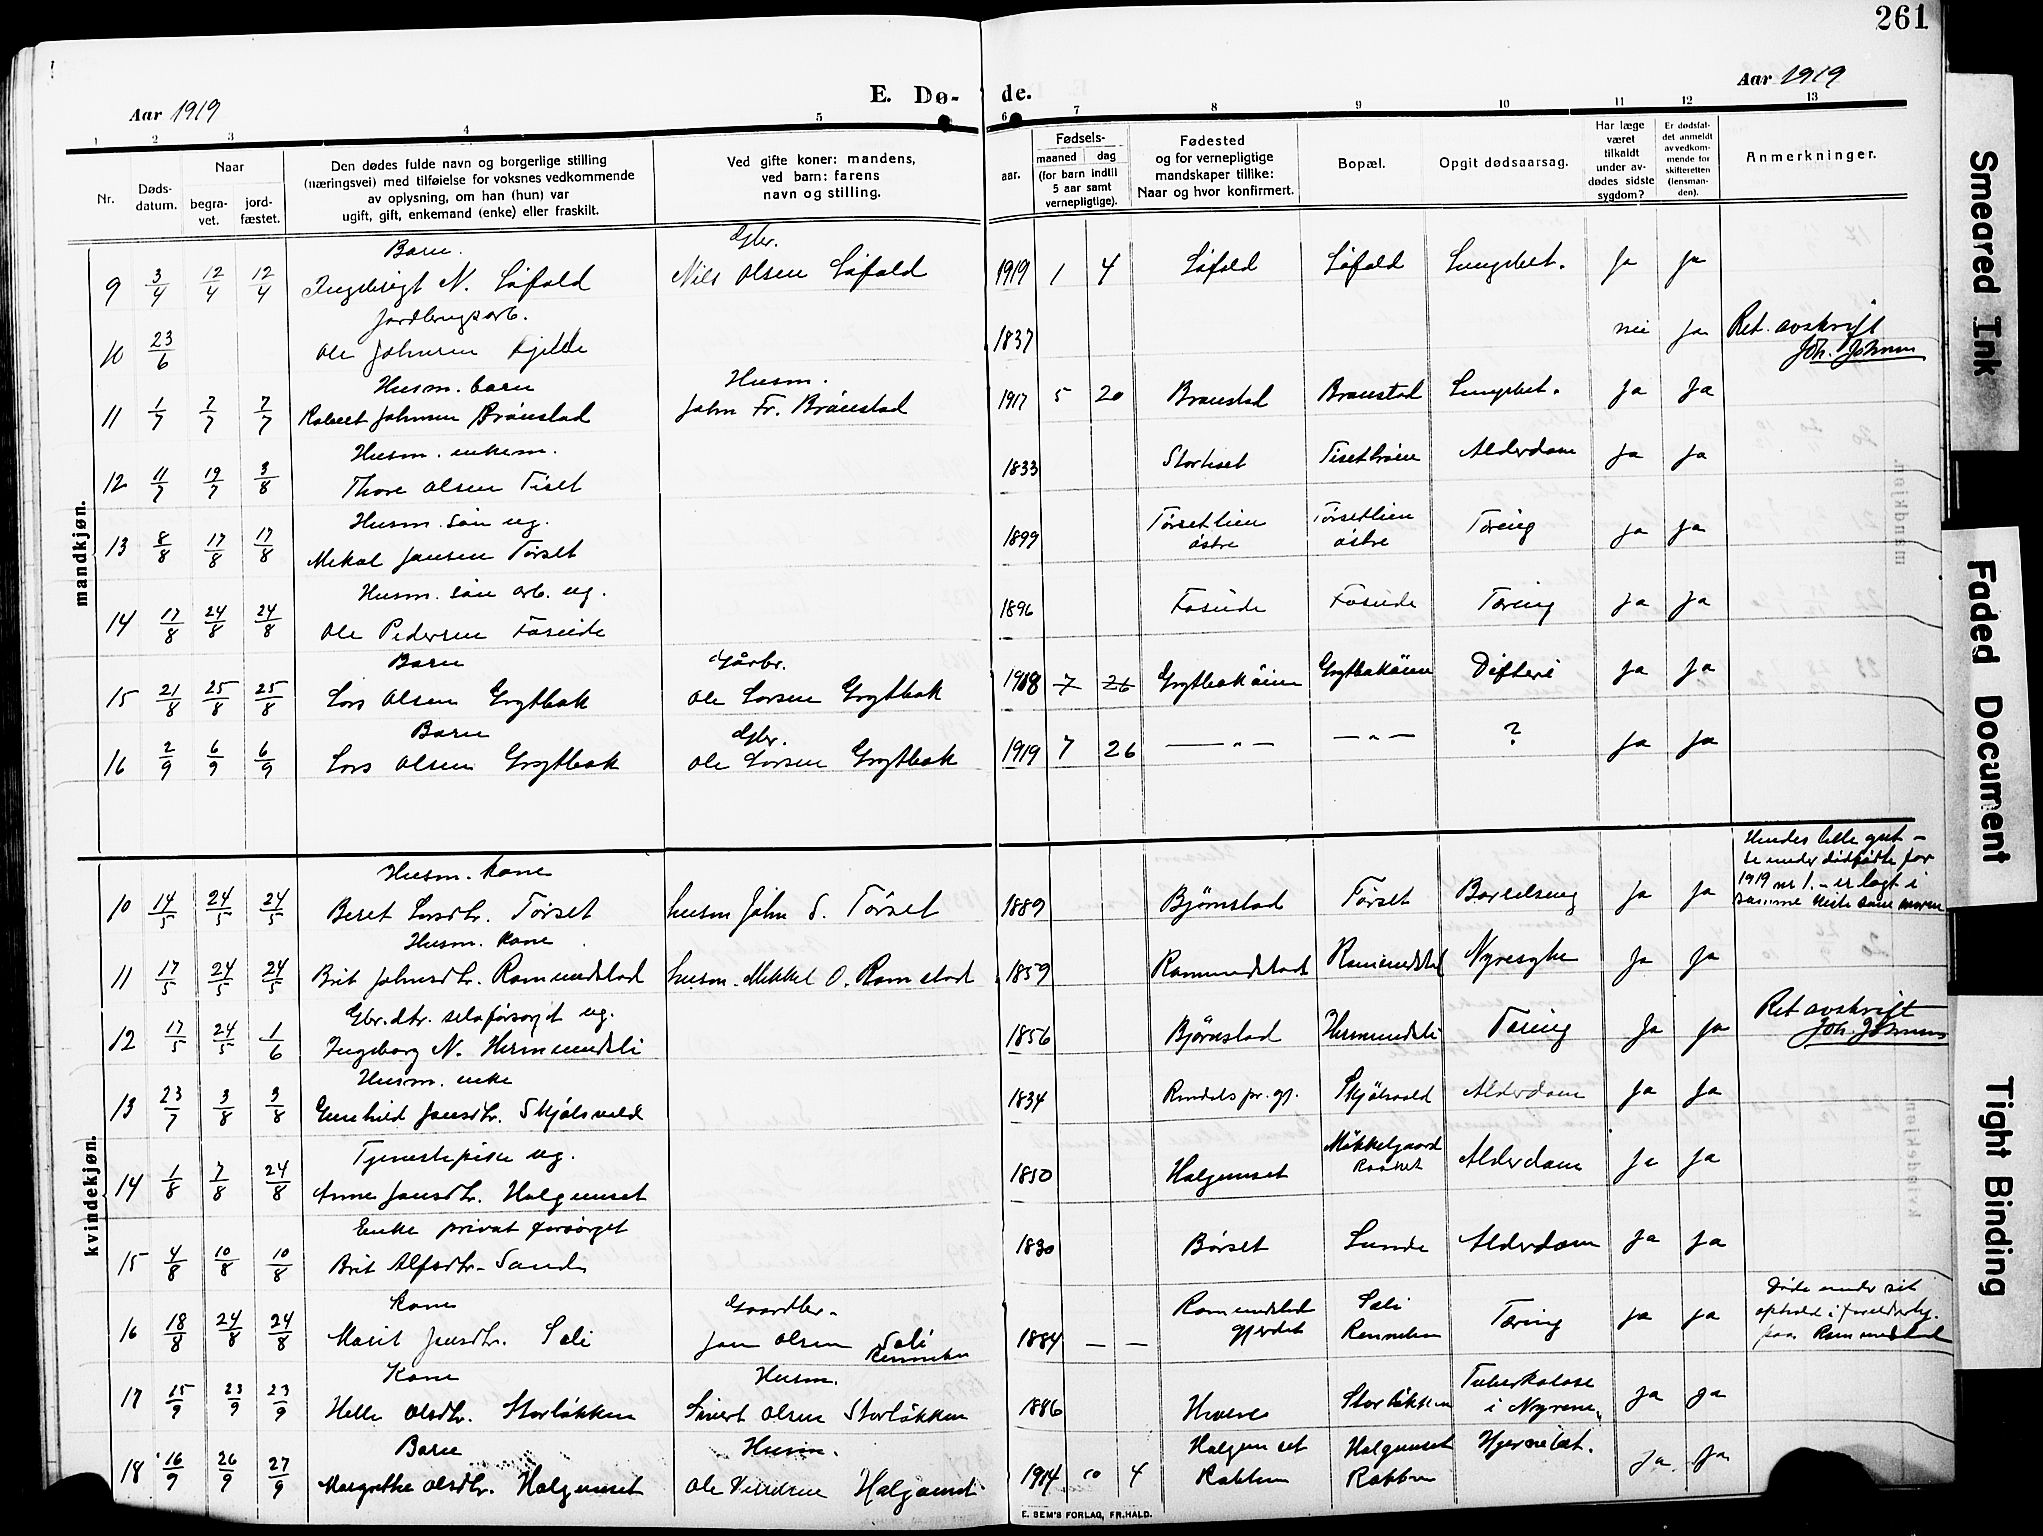 261
Aar 1919
E. Dø-
de.
Aar 1919
1 2 3 4 5 6 7 8 9 10 11 12 13
Nr.
Døds-
datum.
Naar
begra-
vet.
jord-
fæstet.
Den dødes fulde navn og borgerlige stilling
(næringsvei) med tilføielse for voksnes vedkommende
av oplysning, om han (hun) var
ugift, gift, enkemand (enke) eller fraskilt.
Ved gifte koner: mandens,
ved barn: farens
navn og stilling.
Fødsels-
aar.
maaned dag
(for barn indtil
5 aar samt
vernepligtige).
Fødested
og for vernepligtige
mandskaper tillike:
Naar og hvor konfirmert.
Bopæl.
Opgit dødsaarsag.
Har læge
været
tilkaldt
under av-
dødes sidste
sygdom?
Er dødsfal-
det anmeldt
av vedkom-
mende for
skifteretten
(lensman-
den).
Anmerkninger.
mandkjøn.
Barn. Gbr.
9 3/4 12/4 12/4 Ingebrigt N. Løfald Nils Olsen Løfald 1919 1 4 Løfald Løfald Lungebet. Ja Ja
Jordbrugsarb.
10 23/6 Ole Johnsen Kjelde 1837 nei Ja Ret. avskrift
Joh. Johnsen
Husm. barn Husm.
11 1/7 7/7 7/7 Robert Johnsen Brønstad John Fr. Brønstad 1917 5 20 Brønstad Brønstad Lungebet. Ja Ja
Husm. enkem.
12 11/7 19/7 3/8 Thore Olsen Tiset 1833 Stortiset Tisettrøen Alderdom Ja Ja
Husm. søn ug.
13 8/8 17/8 17/8 Mekal Jonsen Tørset 1899 Tørsetlien østre Tørsetlien østre Tæring Ja Ja
Husm. søn arb. ug.
14 17/8 24/8 24/8 Ole Pedersen Foseide 1896 Foseide Foseide Tæring Ja Ja
Barn Gårbr.
15 21/8 25/8 25/8 Lars Olsen Grytbak Ole Larsen Grytbak 1918 7 26 Grytbakøien Grytbakøien Difteri Ja Ja
Barn Gbr.
16 2/9 6/9 6/9 Lars Olsen Grytbak Ole Larsen Grytbak 1919 7 26 — „ — — „ — ? Ja Ja
kvindekjøn.
Husm. kone
10 14/5 24/5 24/5 Beret Larsdtr. Tørset husm John S. Tørset 1889 Bjørnstad Tørset Barselseng Ja Ja
Hendes lille gut –
se under dødfødte for
1919 nr 1. – er lagt i
samme kiste som moren
Husm. kone
11 17/5 24/5 24/5 Brit Johnsdtr. Romundstad husm. Mikkel O. Romstad 1859 Romundstad Romundstd Nyresyke Ja Ja
Gbr. dtr. selvforsørget ug.
12 17/5 24/5 1/6 Ingeborg N. Hermundsli 1856 Bjørnstad Hermundsli Tæring Ja Ja Ret avskrift
Joh. Johnsen
Husm. enke
13 23/7 3/8 3/8 Gunhild Jonsdtr. Skjølsvold 1834 Rindals pr. gj. Skjølsvold Alderdom Ja Ja
Tjenestepike ug.
14 1/8 7/8 24/8 Anne Jonsdtr. Halgunset 1850 Halgunset Møkkelgaard Alderdom Ja Ja
Enke privat forsørget
15 4/8 10/8 10/8 Brit Alfsdtr. Sande 1830 Børset Lunde Alderdom Ja Ja
Kone Gaardbr.
16 18/8 24/8 24/8 Marit Jonsdtr. Sæli Jon Olsen Sæli Rennebu 1884 — — Romundstad gjerdet Sæli Rennebu Tæring Ja Ja
Døde under sit
ophold i forelderhj.
paa Romundstad
Kone Husm.
17 15/9 23/9 23/9 Helle Olsdtr. Storløkken Sivert Olsen Storløkken 1886 Storløkken Tuberkulose i Nyrene. Ja Ja
Barn Husm.
18 16/9 26/9 27/9 Margrethe Olsdtr. Halgunset Ole Halgunset 1914 10 4 Halgunset Rakken Halgunset Rakken Hjernebet. Ja Ja
E. SEM'S FORLAG, FR.HALD.
Smeared Ink
Faded Document
Tight Binding